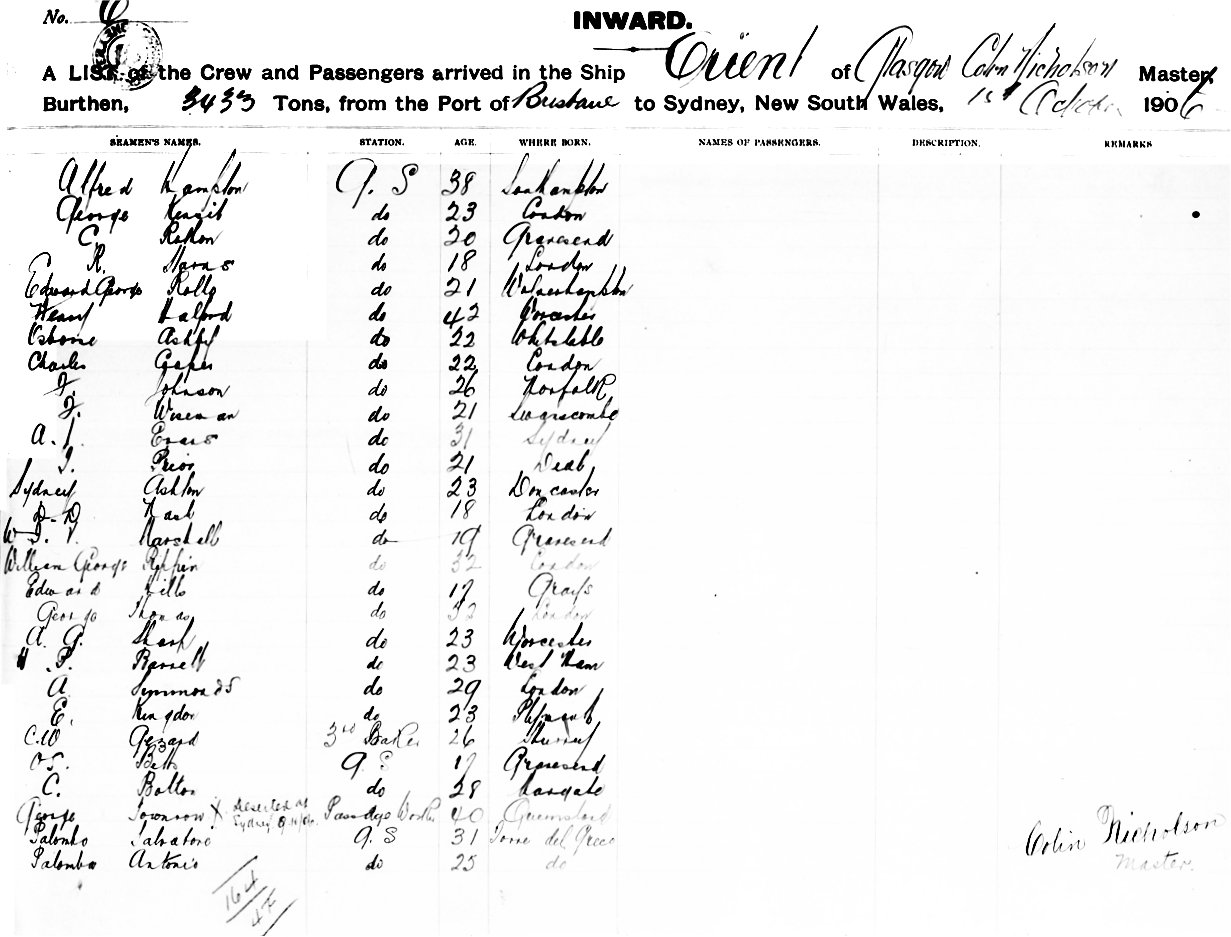 No. 6
INWARD.
A LIST of the Crew and Passengers arrived in the Ship Orient of Glasgow Colin Nicholson Master
Burthen, 3433 Tons, from the Port of Brisbane to Sydney, New South Wales, 1st October 1906
SEAMEN'S NAMES. STATION. AGE. WHERE BORN. NAMES OF PASSENGERS. DESCRIPTION. REMARKS
Alfred Hampton G. S 38 Southampton
George do 23 London
C. do 20 Gravesend
R. do 18 London
Edward George Rolls do 21 Wolverhampton
Henry Halford do 42 Worcester
Osborne Ashby do 22 Whitstable
Charles do 22 London
F. Johnson do 26 Norfolk
F. Wiseman do 21 Swanscombe
A. J. Evans do 31 Sydney
J. Prior do 21 Deal
Sydney Ashton do 23 Doncaster
Nash do 18 London
W. Marshall do 19 Gravesend
William George do 32 London
Edward Mills do 17 Grays
George Thomas do 32 London
A. G. Sharp do 23 Worcester
P. Barnett do 23 West Ham
A Symmonds do 29 London
E. Kingdon do 23 Plymouth
C.W Gerard 3rd Baker 26 Surrey
Betts G S 17 Gravesend
C. Bolton do 28 Margate
George Townrow X Deserted at Passage Worker 40 Queensland
Sydney
Palombo Salvatore G. S 31 Torre del Greco
Palomba Antonio do 25 do
Colin Nicholson
Master.
164
47